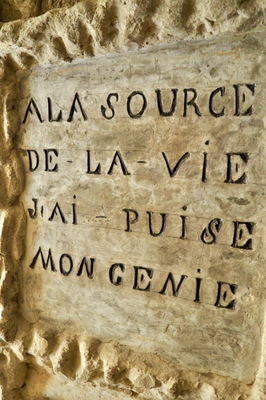 A LA SOURCE
DE-LA-VIE
J.AI-PUISE
MON GENIE